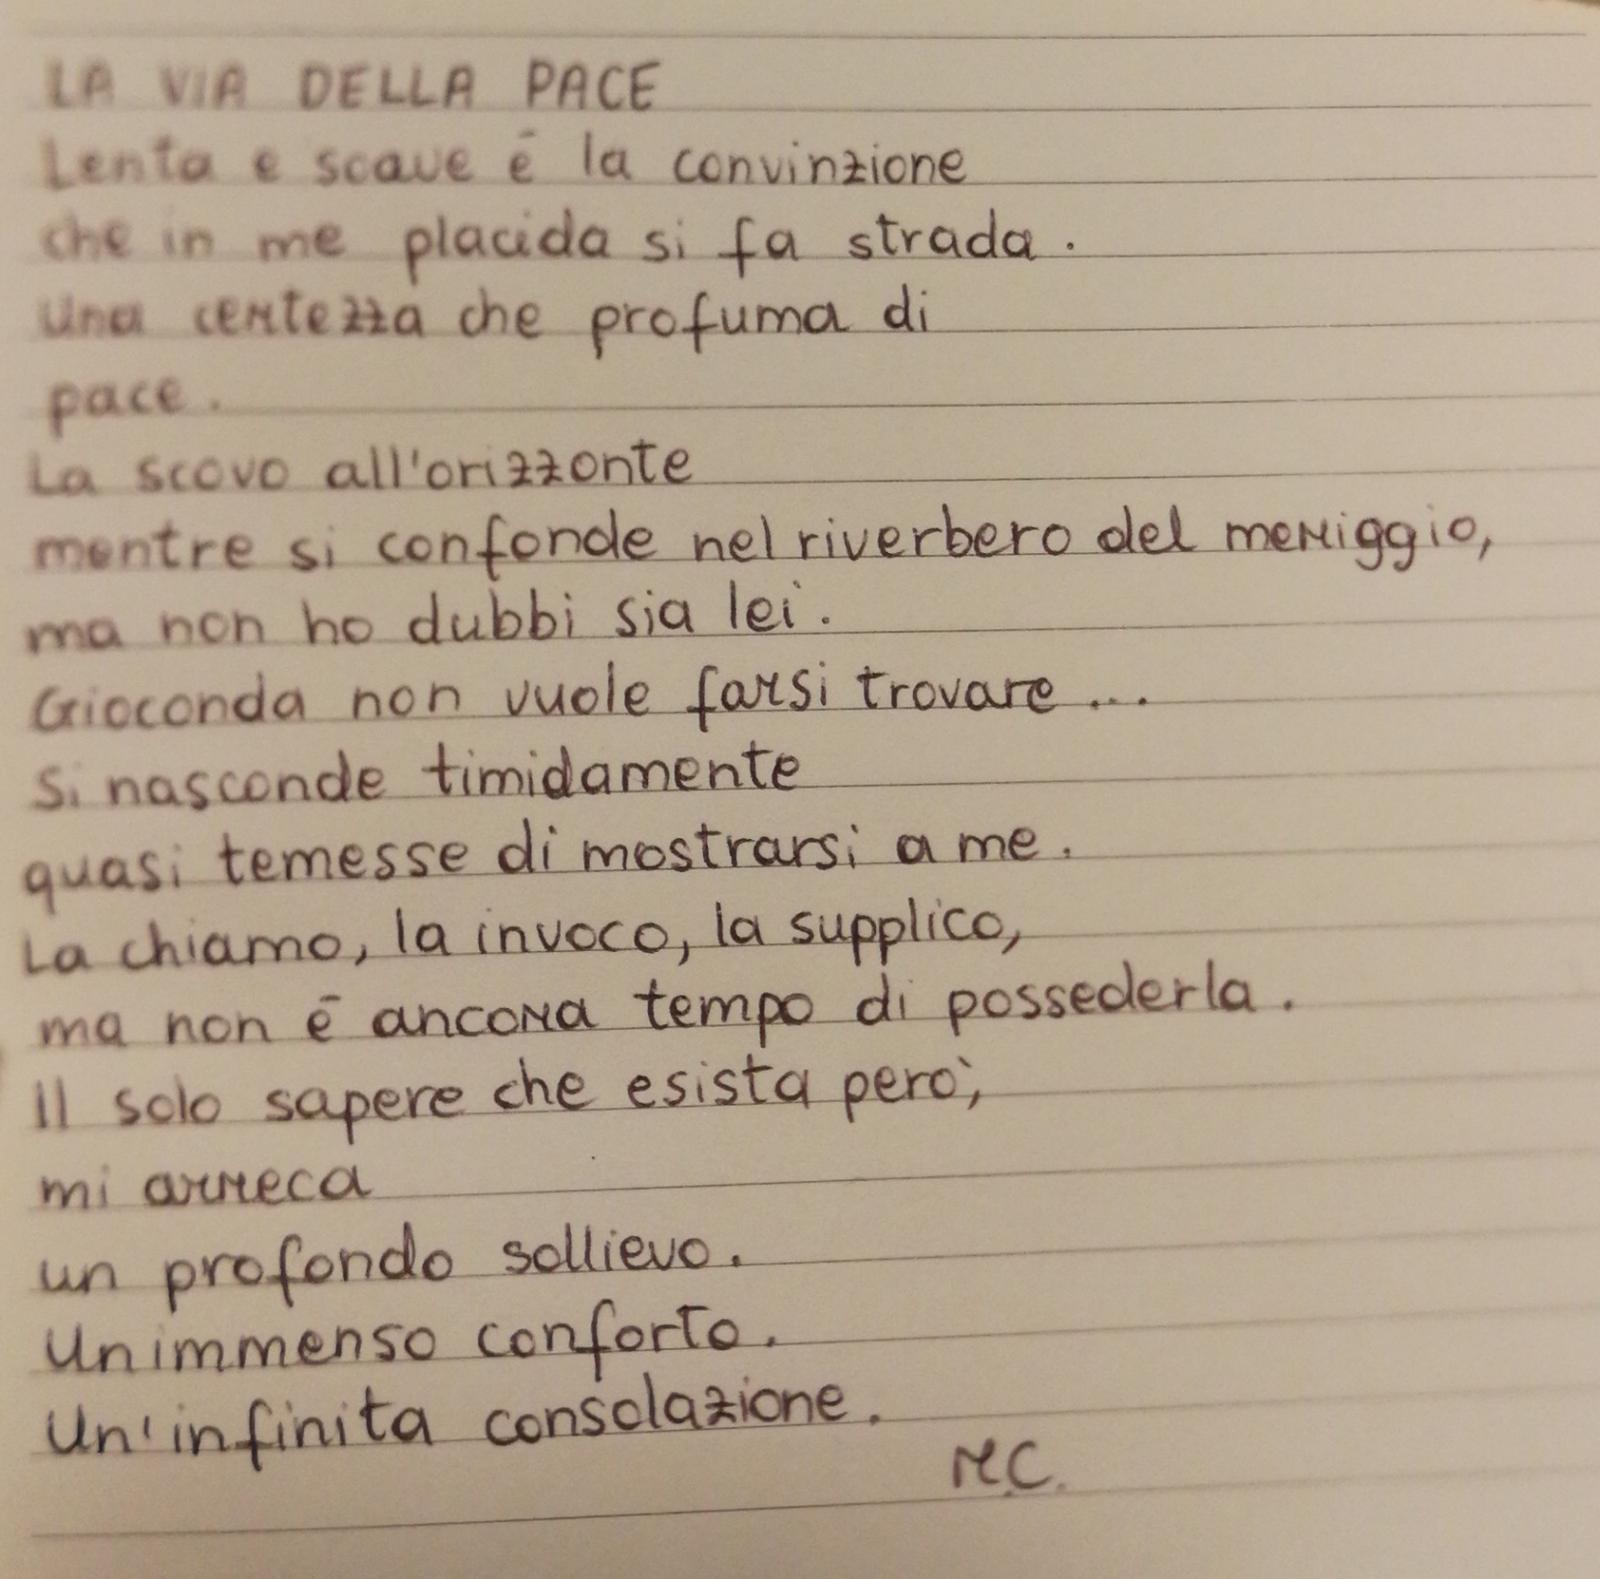 LA VIA DELLA PACE
Lenta e soave è la convinzione
che in me placida si fa strada.
Una certezza che profuma di
pace.
La scovo all'orizzonte
mentre si confonde nel riverbero del meriggio,
ma non ho dubbi sia lei.
Gioconda non vuole farsi trovare...
Si nasconde timidamente
quasi temesse di mostrarsi a me.
La chiamo, la invoco, la supplico,
ma non è ancora tempo di possederla.
Il solo sapere che esista però,
mi arreca
un profondo sollievo.
Un immenso conforto.
Un'infinita consolazione.
M.C.